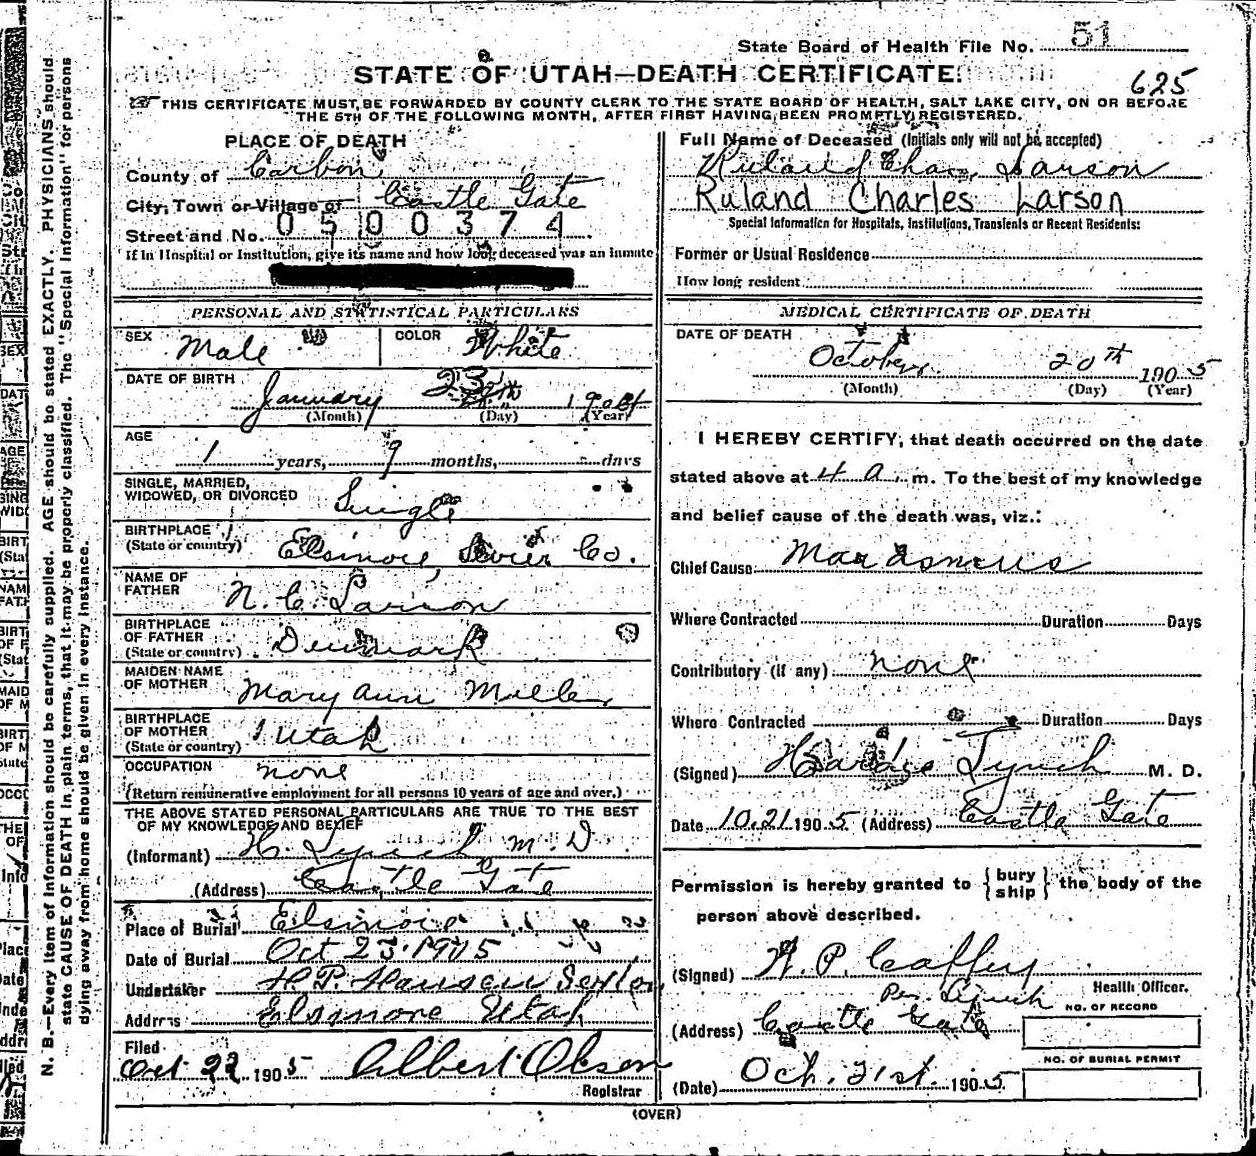 State Board of Health File No. 51
STATE OF UTAH—DEATH CERTIFICATE.
625
THIS CERTIFICATE MUST BE FORWARDED BY COUNTY CLERK TO THE STATE BOARD OF HEALTH, SALT LAKE CITY, ON OR BEFORE
THE 5TH OF THE FOLLOWING MONTH, AFTER FIRST HAVING BEEN PROMPTLY REGISTERED.
PLACE OF DEATH
County of Carbon
City, Town or Village of Castle Gate
Street and No. 0500374
If in Hospital or Institution, give its name and how long deceased was an inmate
Full Name of Deceased (Initials only will not be accepted)
Ruland Chas. Larson
Ruland Charles Larson
Special Information for Hospitals, Institutions, Transients or Recent Residents:
Former or Usual Residence
How long resident
PERSONAL AND STATISTICAL PARTICULARS
SEX Male COLOR White
DATE OF BIRTH
January 23 1904
(Month) (Day) (Year)
AGE
1 years, 9 months, days
SINGLE, MARRIED,
WIDOWED, OR DIVORCED Single
BIRTHPLACE
(State or country) Elsinore, Sevier Co.
NAME OF
FATHER N. C. Larson
BIRTHPLACE
OF FATHER
(State or country) Denmark
MAIDEN NAME
OF MOTHER Mary Ann Miller
BIRTHPLACE
OF MOTHER
(State or country) Utah
OCCUPATION none
(Return remunerative employment for all persons 10 years of age and over.)
THE ABOVE STATED PERSONAL PARTICULARS ARE TRUE TO THE BEST
OF MY KNOWLEDGE AND BELIEF
(Informant) H. Lynch M.D
(Address) Castle Gate
Place of Burial Elsinore
Date of Burial Oct 23 1905
Undertaker H.P. Hansen Sexton
Address Elsinore Utah
Filed
Oct 22 1905 Albert Olsen
Registrar
MEDICAL CERTIFICATE OF DEATH
DATE OF DEATH
October 20th 1905
(Month) (Day) (Year)
I HEREBY CERTIFY, that death occurred on the date
stated above at 4 a. m. To the best of my knowledge
and belief cause of the death was, viz.:
Chief Cause Marasmus
Where Contracted Duration Days
Contributory (if any) none
Where Contracted Duration Days
(Signed) Lynch M. D.
Date 10.21 1905 (Address) Castle Gate
Permission is hereby granted to {bury
ship} the body of the
person above described.
(Signed) W. P. Caffey
Per Lynch Health Officer.
(Address) Castle Gate
NO. OF RECORD
NO. OF BURIAL PERMIT
(Date) Oct. 21st. 1905
(OVER)
N. B.—Every item of information should be carefully supplied. AGE should be stated EXACTLY. PHYSICIANS should
state CAUSE OF DEATH in plain terms, that it may be properly classified. The "Special Information" for persons
dying away from home should be given in every instance.